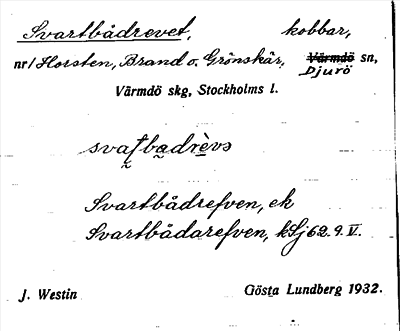 Svartbådrevet, kobbar,
nr 1 Horsten, Brand o. Grönskär, Värmdö sn,
Djurö
Värmdö skg, Stockholms l.
svaṭbadrèvs
Svartbådrefven, ek
Svartbådarefven, kSj 62.9.IV.
J. Westin Gösta Lundberg 1932.